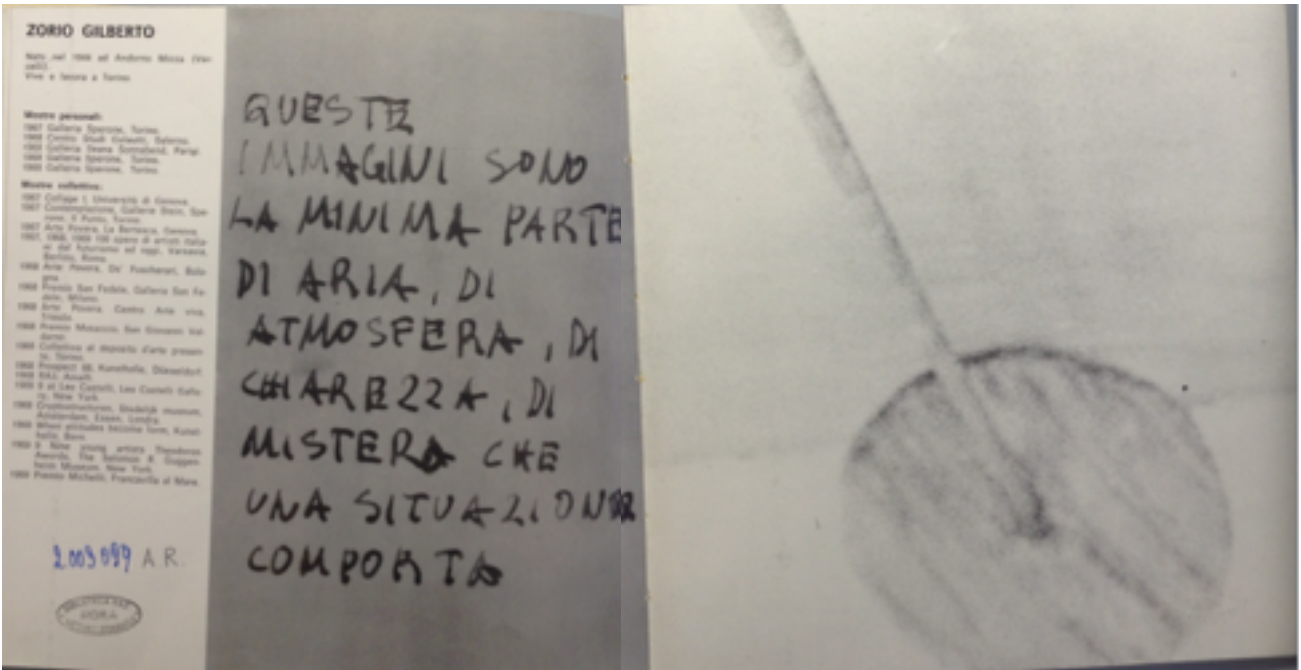 ZORIO GILBERTO
Nato nel 1944 ad Andorno Micca (Ver-
celli).
Vive e lavora a Torino
Mostre personali:
1967 Galleria Sperone, Torino
1968 Centro Studi Colautti, Salerno.
1969 Galleria Ileana Sonnabend, Parigi
1969 Galleria Sperone, Torino.
1969 Galleria Sperone, Torino
Mostre collettive:
1967 Collage I, Università di Genova
1967 Contemplazione, Galleria Stein, Spe-
rone, Il Punto, Torino.
1967 Arte Povera, La Bertesca, Genova
1967, 1968, 1969 100 opere di artisti italia-
ni dal futurismo ad oggi, Varsavia,
Berlino, Roma.
1968 Arte Povera, De' Foscherari, Bolo-
gna.
1968 Premio San Fedele, Galleria San Fe-
dele, Milano.
1968 Arte Povera, Centro Arte viva,
Trieste.
1968 Premio Masaccio, San Giovanni Val-
darno.
1968 Collettiva al deposito d'arte presen-
te, Torino.
1968 Prospect 68, Kunsthalle, Düsseldorf.
1968 RA3, Amalfi
1968 9 at Leo Castelli, Leo Castelli Galle-
ry, New York.
1969 Stedelijk museum,
Amsterdam, Essen, Londra.
1969 When attitudes become form, Kunst-
halle, Bern.
1969 Nine young artists Theodoron
Awards, The Solomon R. Guggen-
heim Museum, New York.
1969 Premio Michetti, Francavilla al Mare
2.009099 A R.
BIBLIOTECA NAZ.
ROMA
QUESTE
IMMAGINI SONO
LA MINIMA PARTE
DI ARIA, DI
ATMOSFERA, DI
CHIAREZZA, DI
MISTERO CHE
UNA SITUAZIONE
COMPORTA